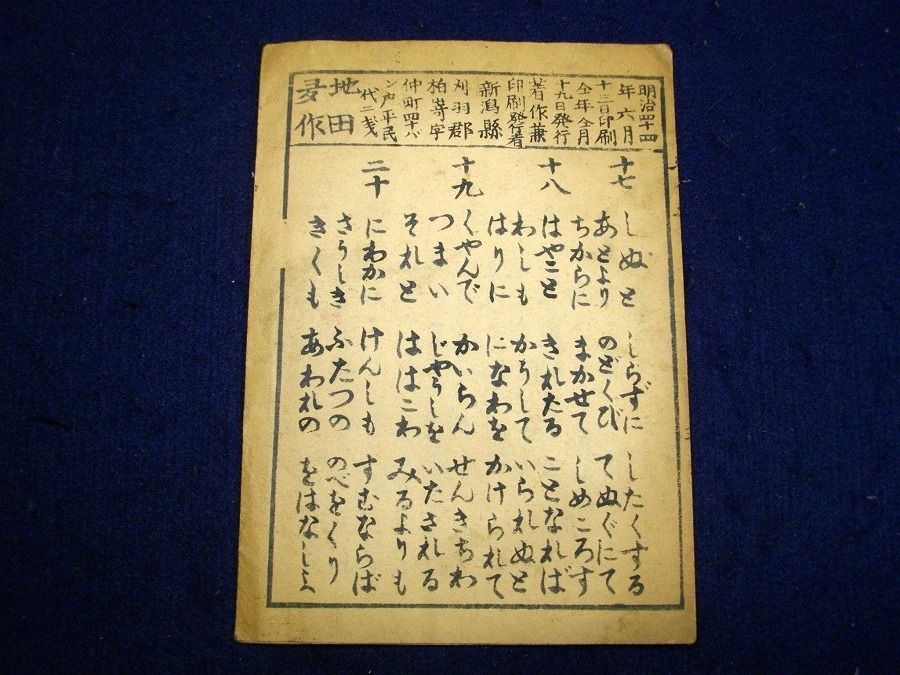 明治四十四
年六月
十三日印刷
仝年仝月
十九日発行
著作兼
印刷発行者
新潟縣
刈羽郡
柏崎字
仲町四十八
ン戸平民
代二戔
地田
麦作
十七 しぬと しらずに したくする
あとより のどくび てぬぐにて
ちからに まかせて しめころす
十八 はやこと きれたる ことなれば
わしも かうして いられぬと
はりに になわを かけられて
十九 くやんで かいらん せんきちわ
つまい じやうしを いたされる
それと ははこわ みるよりも
二十 にわかに けんしも すむならば
さうしき ふたつの のべをくり
きくも あわれの をはなしよ